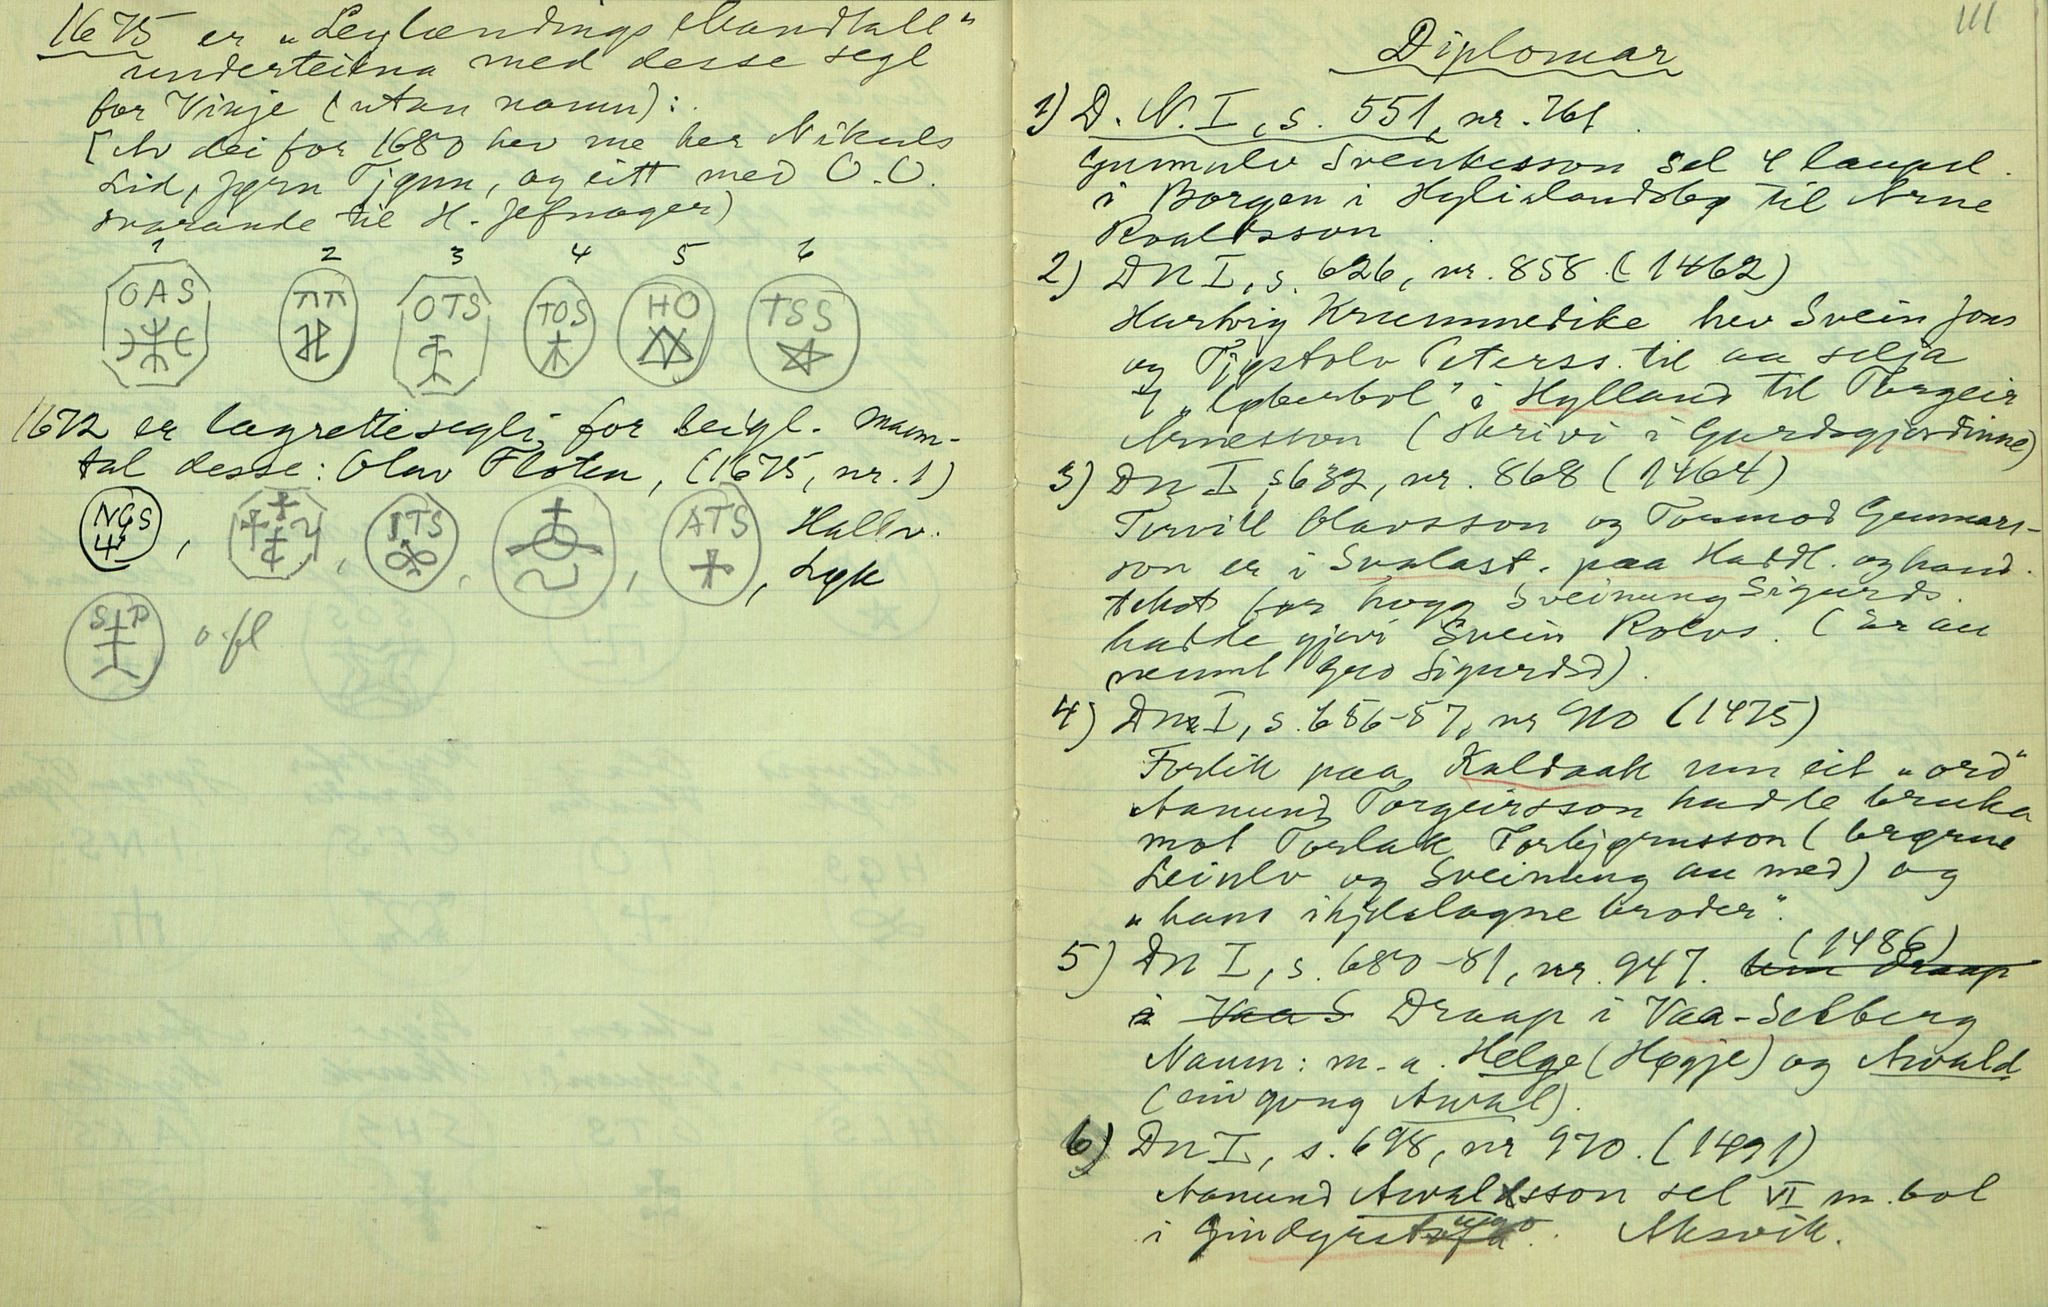 1675 er „Leylændings Mandtall"
underteikna med desse segl
for Vinje (utan namn):
[Av dei for 1680 hev me her Nikuls
Lid, Jørn Tjønn, og eitt med O.O.
svarande til H. Jefnager)
1 2 3 4 5 6
OAS ππ OTS TOS HO TSS
1672 er lagrettesegli for leigl. mann-
tal desse: Olav Floten, (1675, nr. 1)
NGS , , ITS , , ATS , Hallv.
Løk
SP o.fl
111
Diplomar
1) D. N. I, s. 551, nr. 761.
Gunnulv Sveinkesson sel 4 laupsl.
i Borgen i Hylislandsbø til Arne
Roaldsson.
2) DN I, s. 626, nr. 858. (1462)
Hartvig Krummedike hev Svein Jons
og Tjøstolv Peterss. til aa selja
4 „løberbol" i Hylland til Torgeir
Arnesson (skrivi i Gardsgjordinne)
3) DN I, s 632, nr. 868 (1464)
Torvill Olavsson og Tormod Gunnars-
son er i Svalast. paa Haddl. og hand-
tekot for hogg Sveinung Sigurds.
hadde gjevi Svein Rolvs. (Er au
nemnt Gro Sigurdsd).
4) DN I, s. 656-57, nr 910 (1475)
Forlik paa Kaldaak um eit „ord"
Aanund Torgeirsson hadde bruka
mot Torlak Torbjørnsson (brørne
Leiulv og Sveinung au med) og
„hans ihjelslagne broder".
5) DN I, s. 680-81, nr. 947. (1486) um Draap
i Vaa S Draap i Vaa-Selberg
Namn: m. a. Helge (Høgje) og Avald
(ein gong Awal).
6) DN I, s. 698, nr 970. (1491)
Aanund Avaldsson sel VI m. bol
i Aksvik.